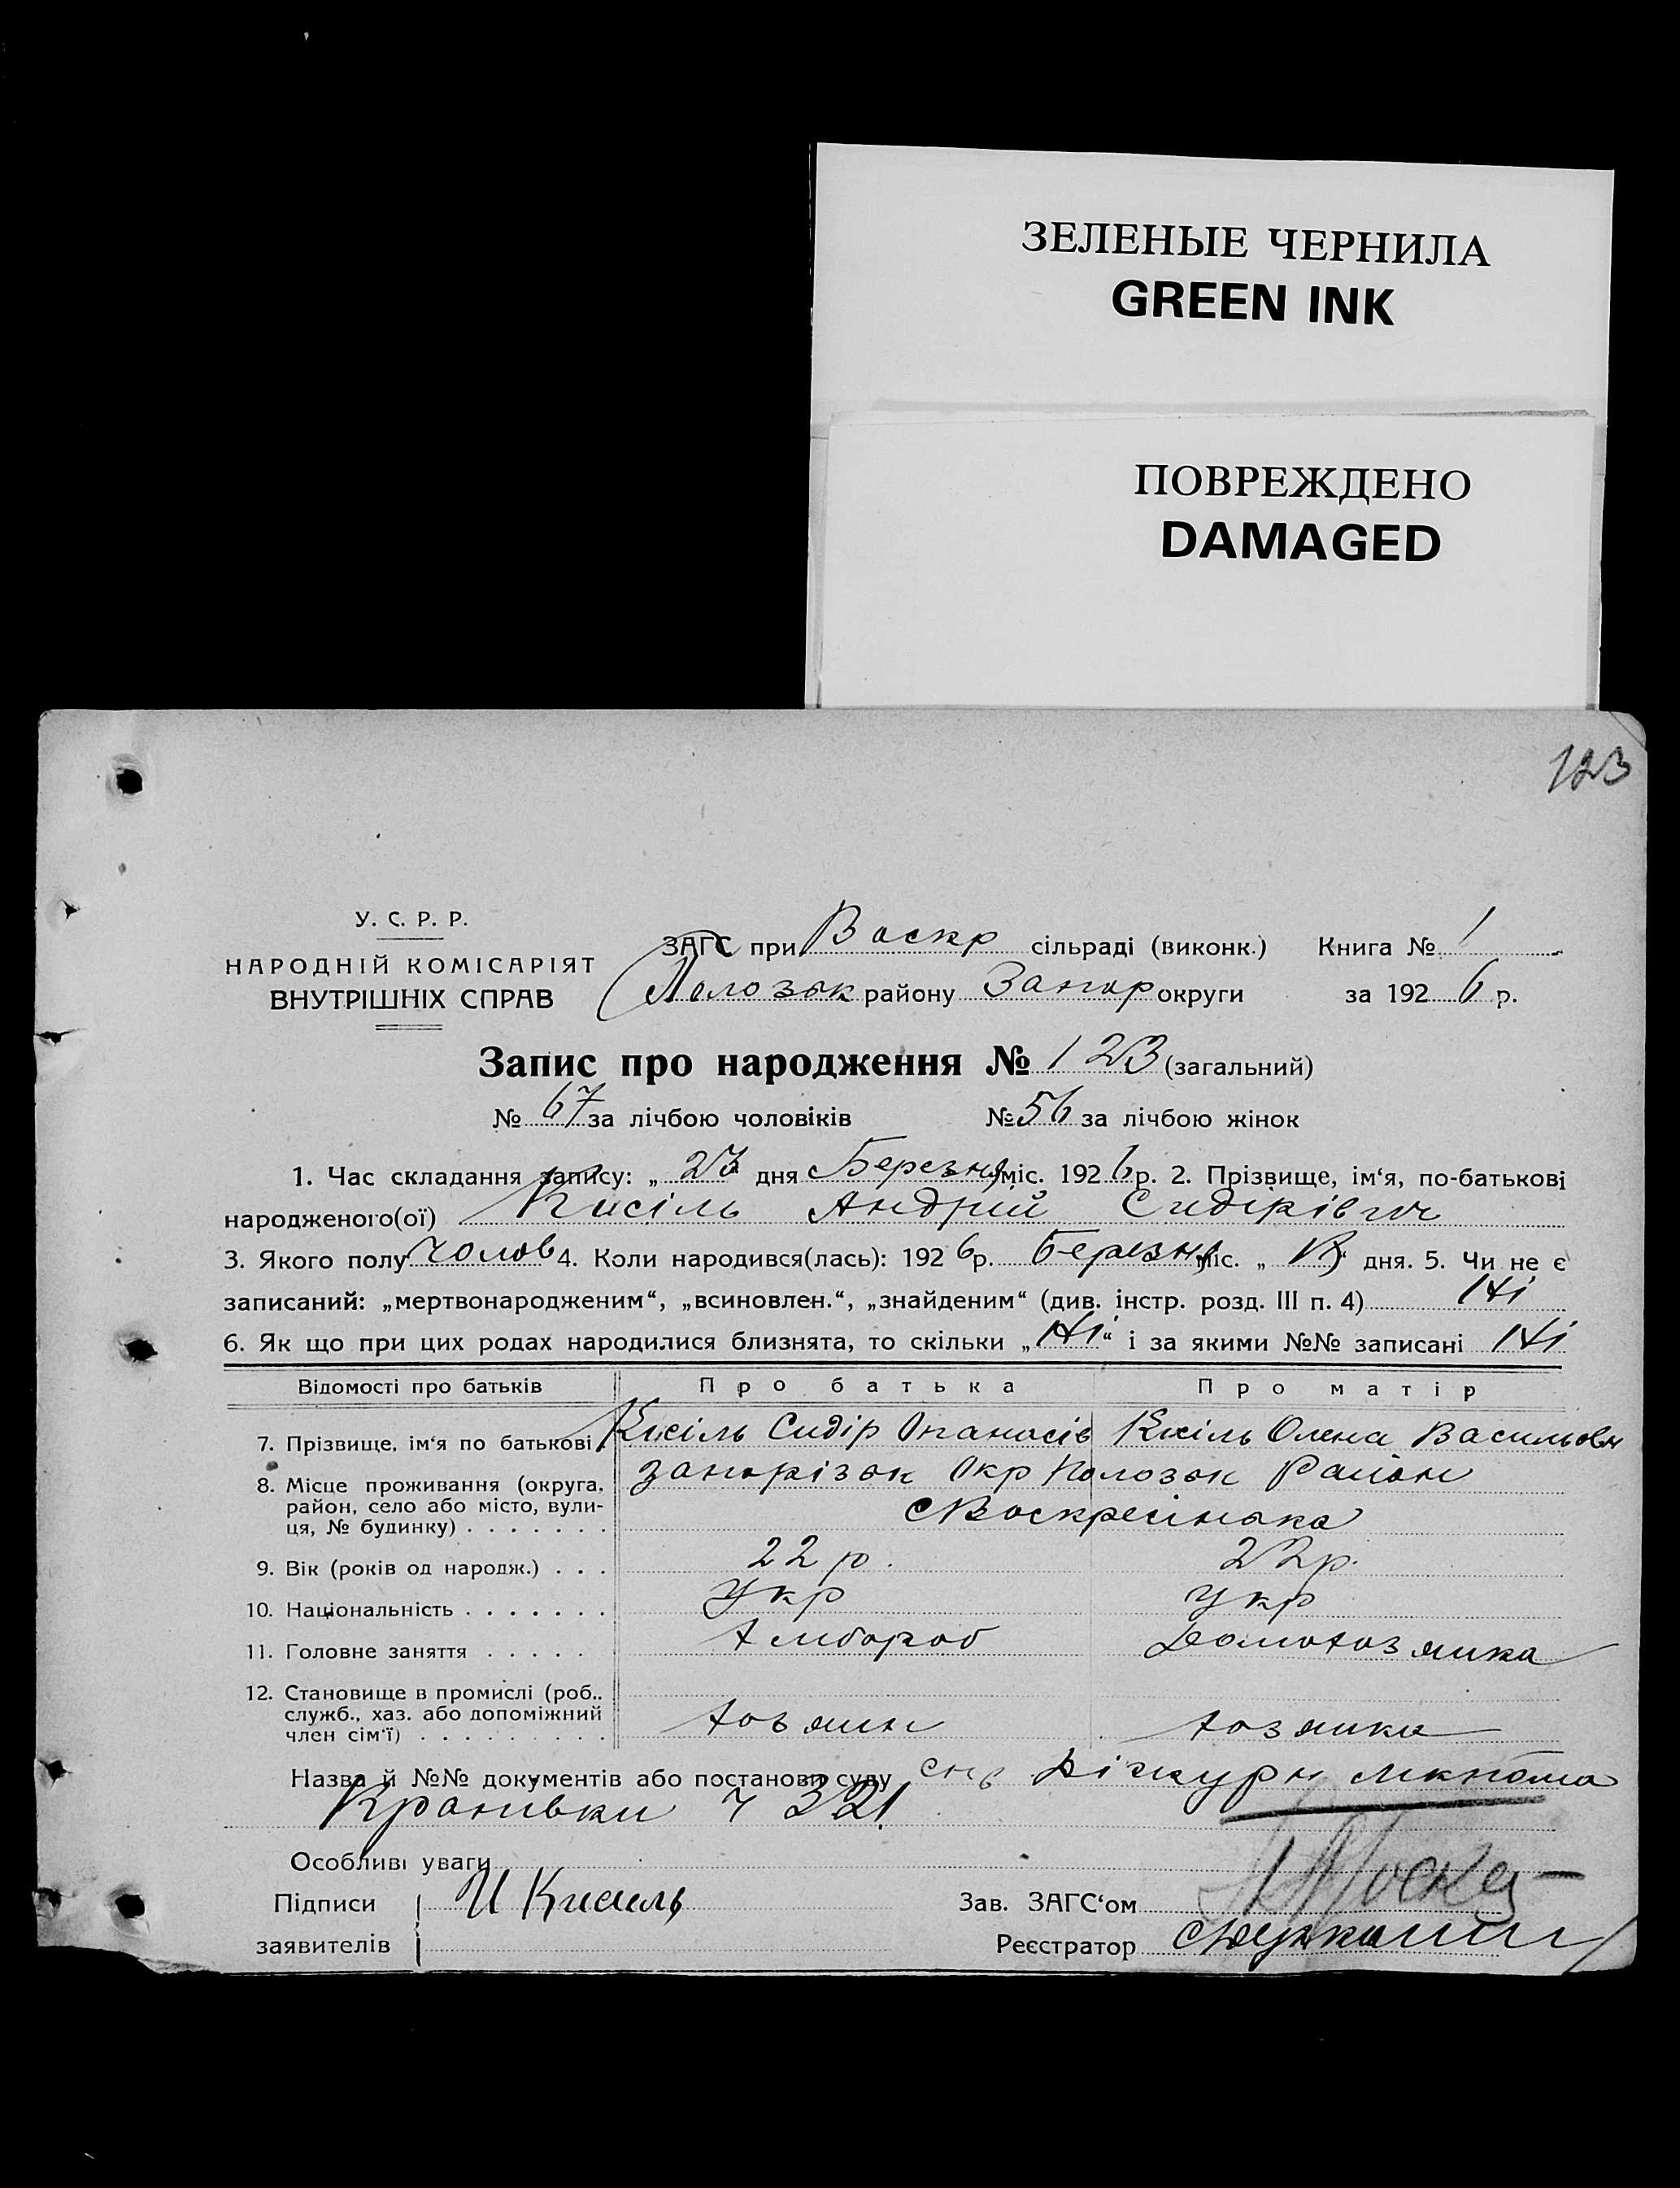 ЗЕЛЕНЫЕ ЧЕРНИЛА
GREEN INK
ПОВРЕЖДЕНО
DAMAGED
123
У. С. Р. Р.
НАРОДНІЙ КОМІСАРІЯТ
ВНУТРІШНІХ СПРАВ
ЗАГС при Воскр сільраді (виконк.) Книга № 1
Полозьк району Запор округи за 1926 р.
Запис про народження № 123 (загальний)
№ 67 за лічбою чоловіків № 56 за лічбою жінок
1. Час складання запису: „ 23 дня Березня міс. 1926 р. 2. Прізвище, ім‘я, по-батькові
народженого(ої) Кисіль Андрій Сидірівич
3. Якого полу чолов 4. Коли народився(лась): 1926 р. Березня міс. „ “ дня. 5. Чи не є
записаний: „мертвонародженим“, „всиновлен.“, „знайденим“ (див. інстр. розд. III п. 4) Ні
6. Як що при цих родах народилися близнята, то скільки „Ні“ і за якими №№ записані Ні
Відомості про батьків Про батька Про матір
7. Прізвище, ім‘я по батькові Кисіль Сидір Опанасів Кисіль Олена Васильовн
8. Місце проживання (округа, район, село або місто, вули-ця, № будинку) . . . . . . . Запорізьк Окр Полозьк Район
с Воскресінька
9. Вік (років од народж.) . . . 22 р. 22 р.
10. Національність . . . . . . . Укр Укр
11. Головне заняття . . . . . Хлібороб Домохазяйка
12. Становище в промислі (роб.. служб., хаз. або допоміжний член сім‘ї) . . . . . . . . . хазяин хазяйка
Назва й №№ документів або постанови суду
ч 321.
Особливі уваги
Підписи И Кисиль Зав. ЗАГС‘ом
заявителів Реєстратор